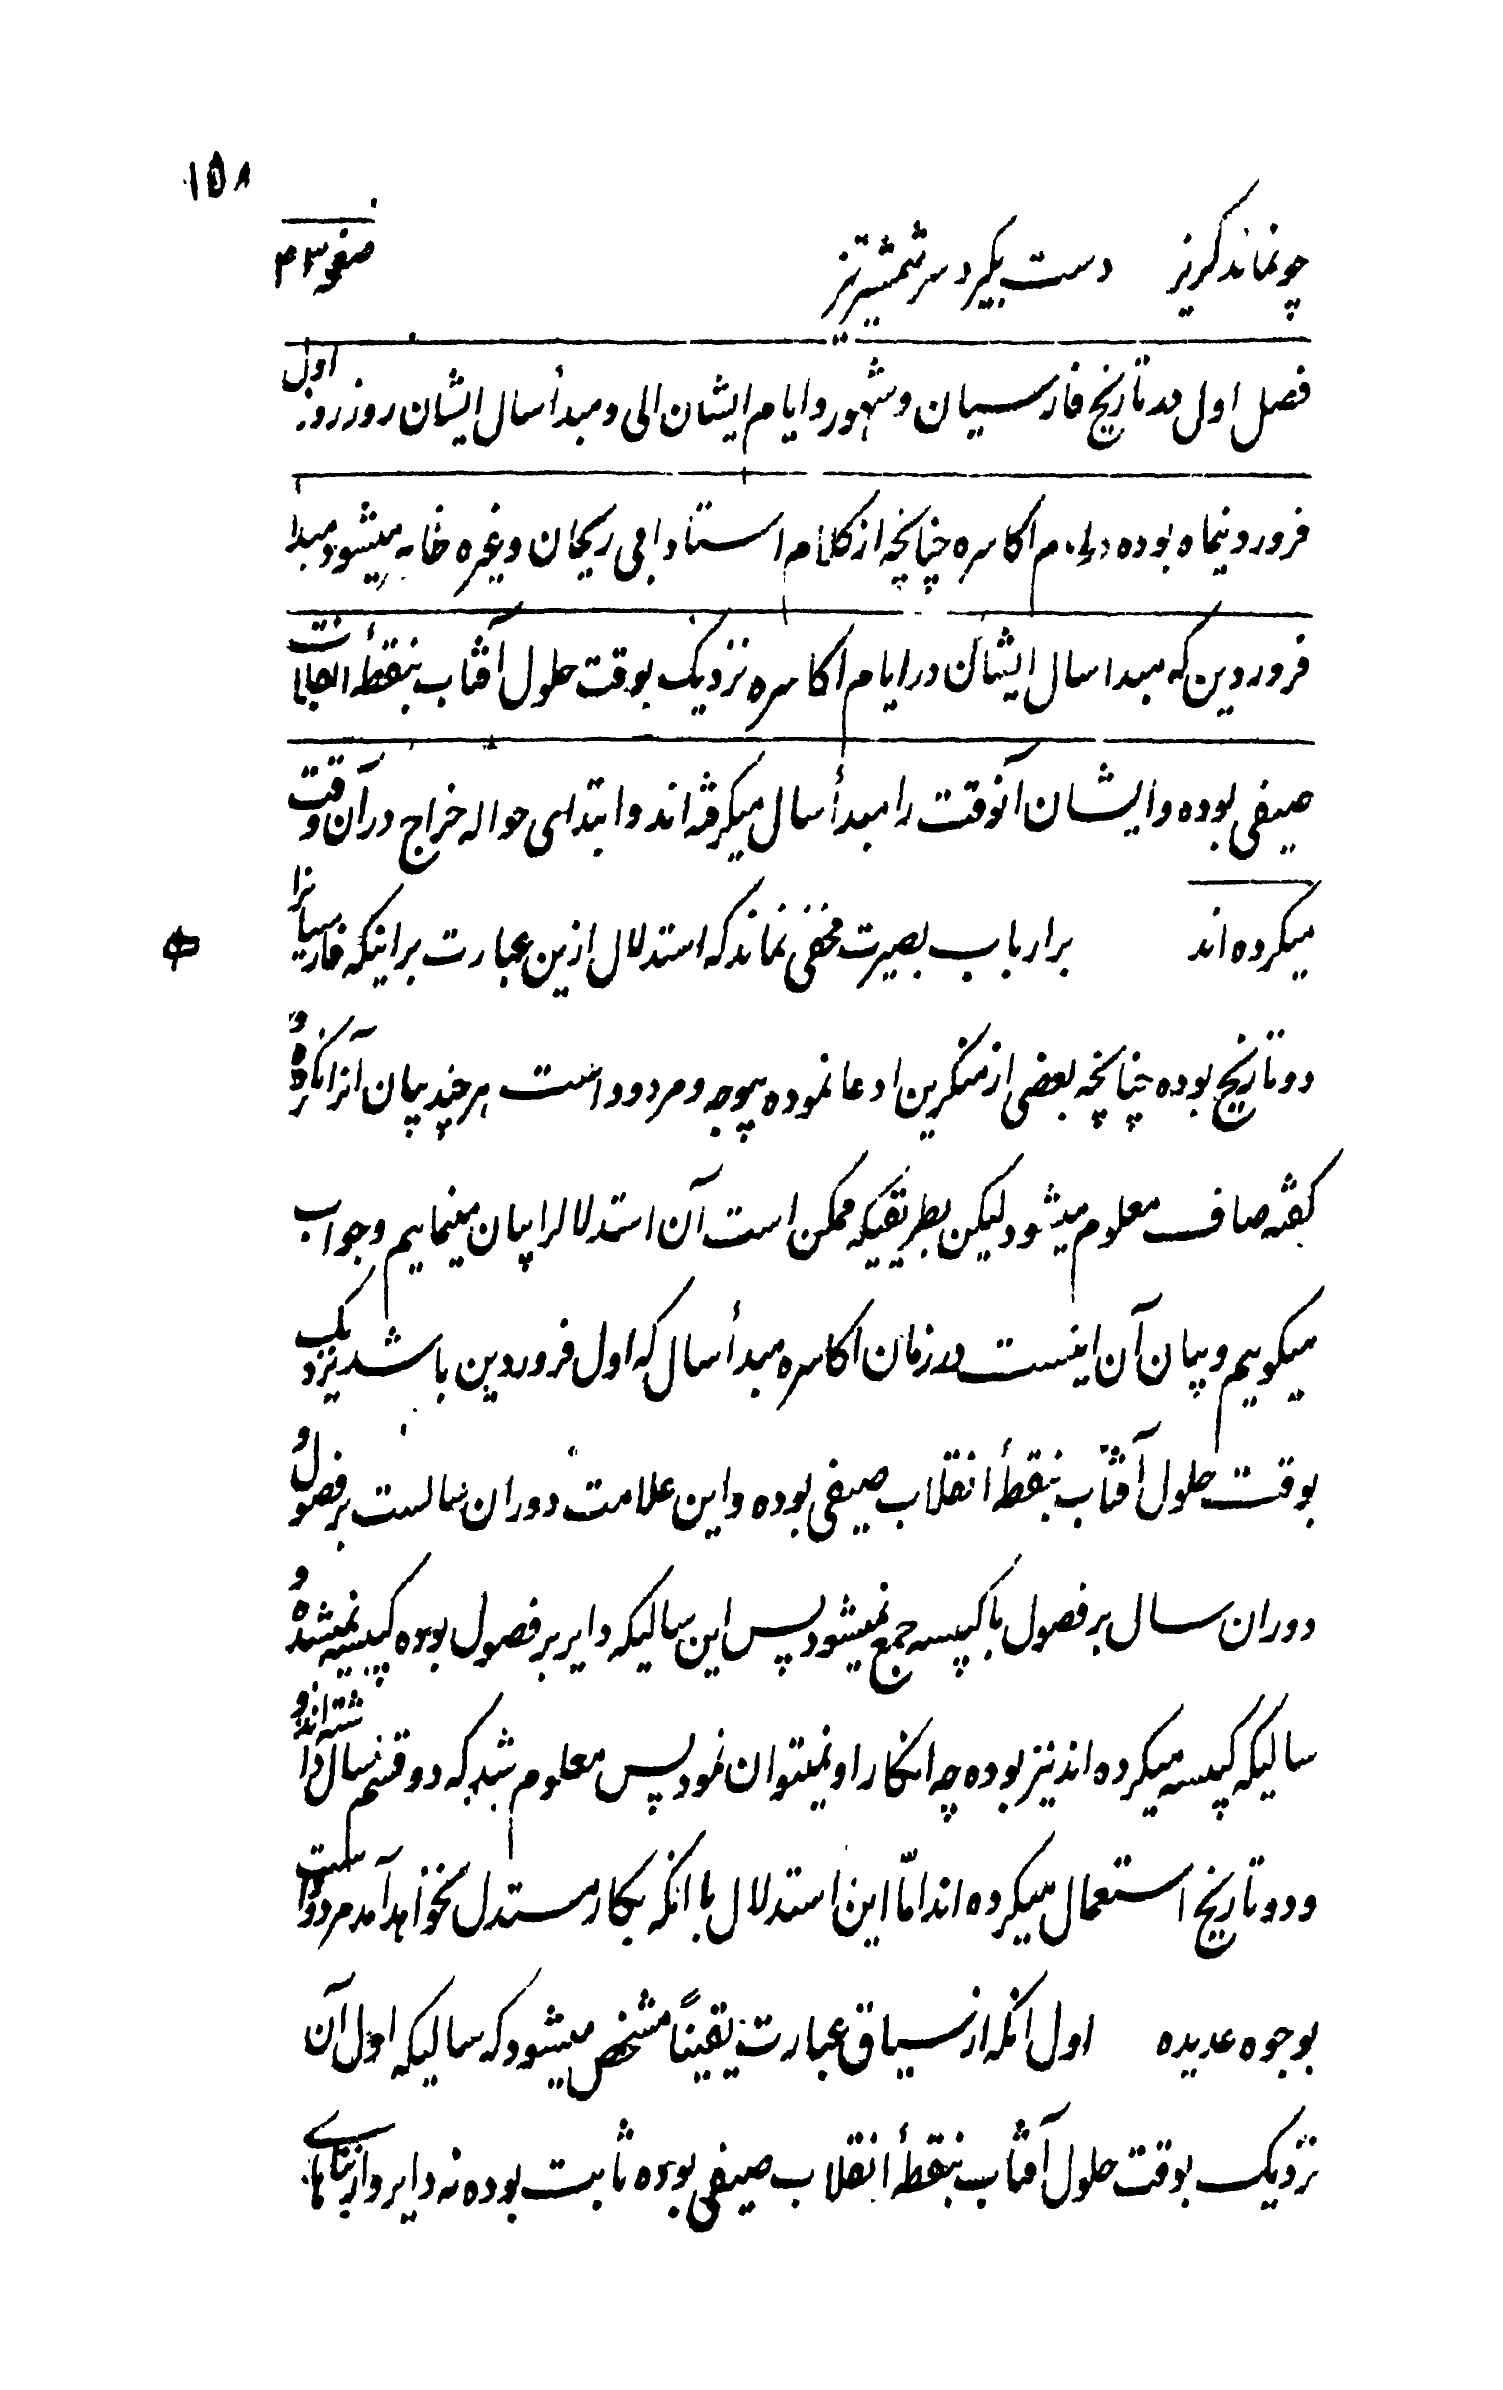 ۱۵۸
چو نماند گریز دست بگیرد سر شمشیر تیز صفحه ۴۳
فصل اول در تاریخ فارسیان و شهور و ایام ایشان الی و مبدأ سال ایشان روز اول
فروردینماه بوده در ایام اکاسره چنانچه از کلام استاد ابی ریحان و غیره ظاهر میشود مبدا
فروردین که مبدا سال ایشان در ایام اکاسره نزدیک بوقت حلول آفتاب بنقطهٔ انقلاب
صیفی بوده و ایشان آنوقت را مبدأ سال میگرفته اند و ابتدای حواله خراج در آن وقت
میکرده اند بر ارباب بصیرت مخفی نماند که استدلال ازین عبارت بر اینکه فارسیانرا
دو تاریخ بوده چنانچه بعضی از منکرین ادعا نموده پوچ و مردود است هر چند بیان آنرا نکرده و
نگفته صاف معلوم میشود لیکن بطریقیکه ممکن است آن استدلالرا بیان مینماییم و جواب
میگوییم و بیان آن اینست در زمان اکاسره مبدأ سال که اول فروردین باشد نزدیک
بوقت حلول آفتاب بنقطهٔ انقلاب صیفی بوده و این علامت دوران سالست بر فصول و
دوران سال بر فصول با کبیسه جمع نمیشود پس این سالیکه دایر بر فصول بوده کبیسه نمیشده و
سالیکه کبیسه میکرده اند نیز بوده چه انکار او نمیتوان نمود پس معلوم شد که دو قسم سال داشته اند و
و دو تاریخ استعمال میکرده اند امّا این استدلال با آنکه بکار مستدل نخواهد آمد مردود است
بوجوه عدیده اول آنکه از سیاق عبارت یقیناً مشخص میشود که سالیکه اول آن
نزدیک بوقت حلول آفتاب بنقطهٔ انقلاب صیفی بوده ثابت بوده نه دایر و از